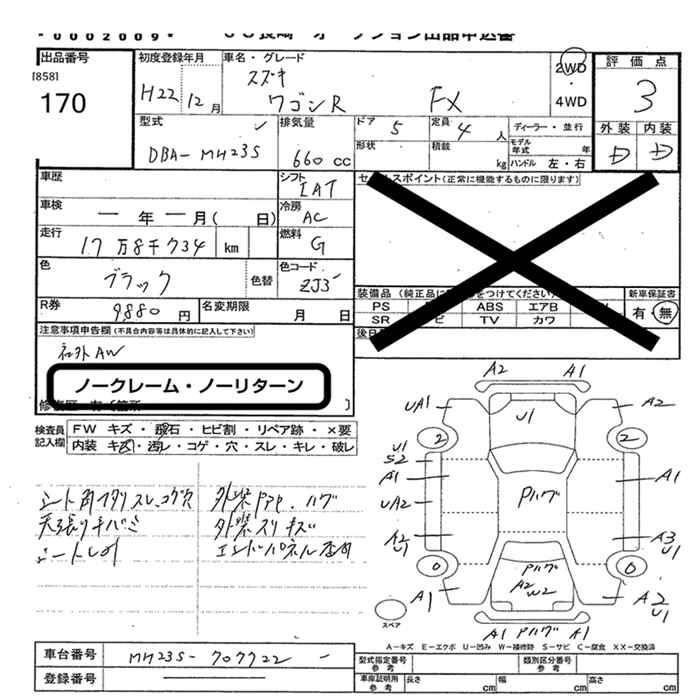 0002009
出品番号
[858]
170
初度登録年月
H22 12月
車名・グレード
スズキ
ワゴンR FX
2WD
4WD
評価点
3
外装 内装
D D
型式
DBA-MH23S
排気量
660 cc
ドア 5
定員 4人
形状
積載 kg
ディーラー・並行
モデル年式 年
ハンドル 左・右
車歴
シフト
IAT
セールスポイント(正常に機能するものに限ります)
車検
ー年ー月( 日)
冷房
AC
走行
17万8千734 km
燃料
G
色
ブラック
色替
色コード
ZJ3
装備品(純正品に
をつけてください)
PS ABS エアB
SR TV カワ
新車保証書
有・無
R券
9880円
名変期限
月 日
後日
注意事項申告欄(不具合内容等は具体的に記入して下さい)
社外AW
ノークレーム・ノーリターン
検査員記入欄
FW キズ・飛石・ヒビ割・リペア跡・×要
内装 キズ・汚レ・コゲ・穴・スレ・キレ・破レ
天張り
シート
外装スリキズ
エンドパネル
A2 A1
UA1 U1 A2
2 2
U1
S2
A1 A1
UA2 Pハゲ
A2
U1 A3
U1
0 Pハゲ 0
A2
W2
A1 A2
U1
A1 Pハゲ A1
スペア
A-キズ E-エクボ U-凹み W-補修跡 S-サビ C-腐食 XX-交換済
車台番号
MH23S-707722
登録番号
型式指定番号参考
類別区分番号参考
車庫証明用参考
長さ cm 幅 cm 高さ cm